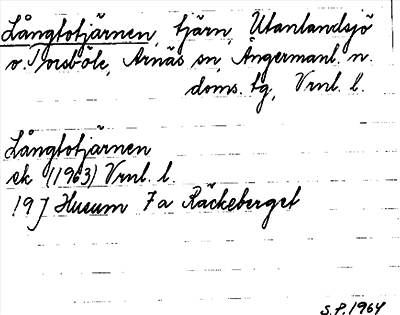 Långtotjärnen, tjärn, Utanlandsjö
v. Torsböle, Arnäs sn, Ångermanl. n.
doms. tg, Vrnl. l.
Långtotjärnen
ek (1963) Vrnl. l.
19 J Husum 7a Räckeberget
S.P. 1964